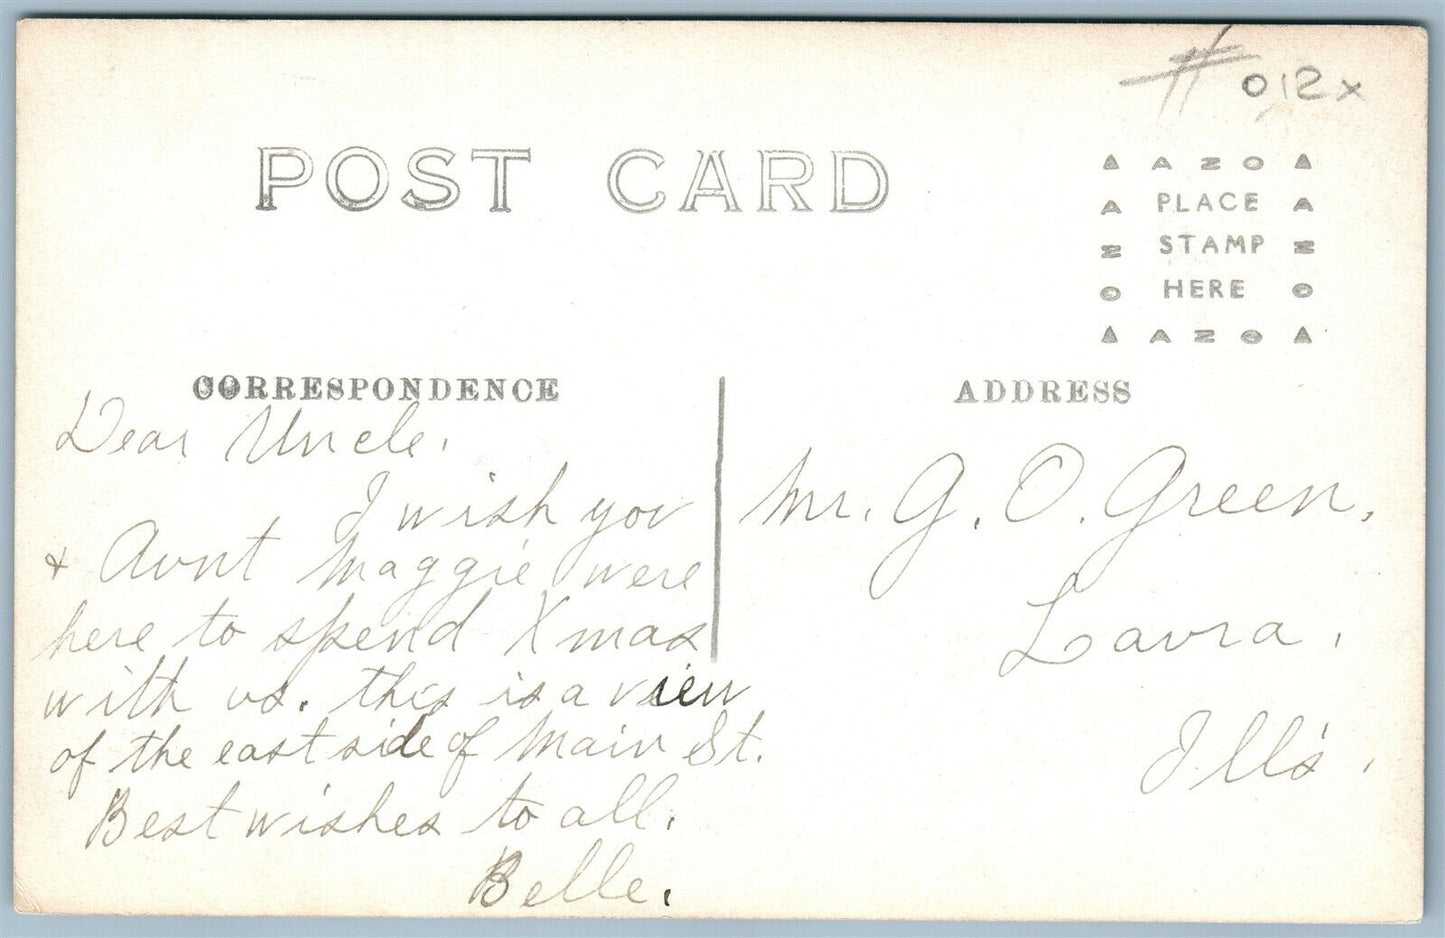 # 012x
POST CARD
▲ A Z O ▲
A PLACE A
Z STAMP Z
O HERE O
▲ A Z O ▲
CORRESPONDENCE
Dear Uncle.
I wish you
+ Aunt Maggie were
here to spend Xmas
with us. this is a view
of the east side of Main St.
Best wishes to all.
Belle.
ADDRESS
Mr. G. O. Green,
Laura,
Ill's.